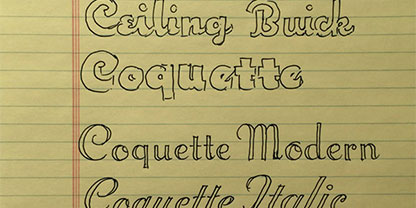 Ceiling Buick
Coquette
Coquette Modern
Coquette Italic